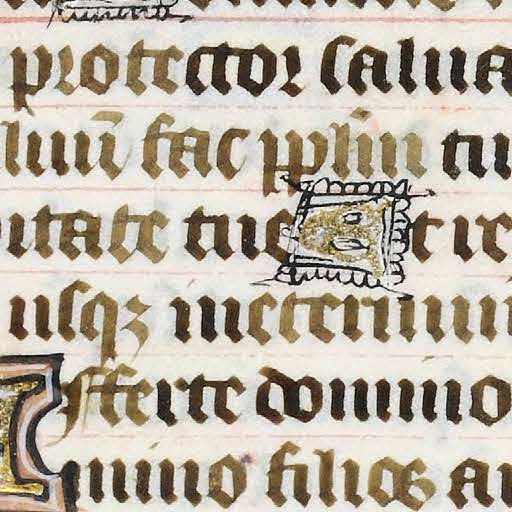 protector salua
luū fac pplm tu
itate tue Et re
usqȝ in eternum
fferte domino
mino filios ar